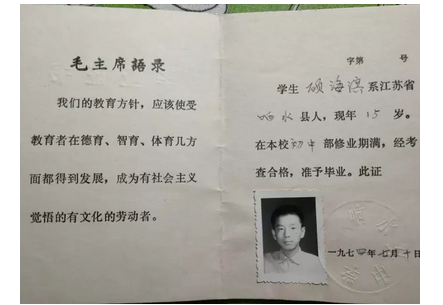 毛主席語录
我们的教育方针，应该使受
教育者在德育、智育、体育几方
面都得到发展，成为有社会主义
觉悟的有文化的劳动者。
字第 号
学生 海滨 系江苏省
响水 县人，现年 15 岁。
在本校 初中 部修业期满，经考
查合格，准予毕业。此证
一九七四年七月十日